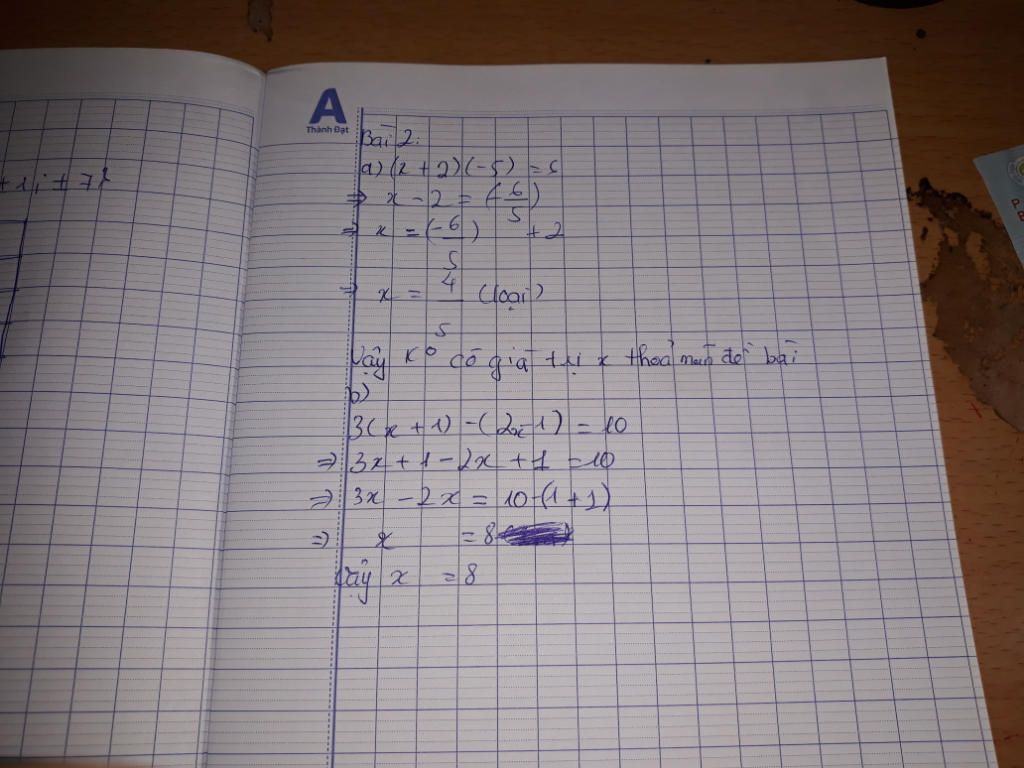 + 1; + 7}
A
Thành Đạt
Bài 2:
a) (x + 2) (-5) = 6
=> x - 2 = (-6/5)
=> x = (-6/5) + 2
=> x = 4/5 (loại)
Vậy K° có giá trị x thoả mãn đề bài
b)
3(x + 1) - (2x - 1) = 10
=> 3x + 1 - 2x + 1 = 10
=> 3x - 2x = 10 - (1 + 1)
=> x = 8
Vậy x = 8
P.